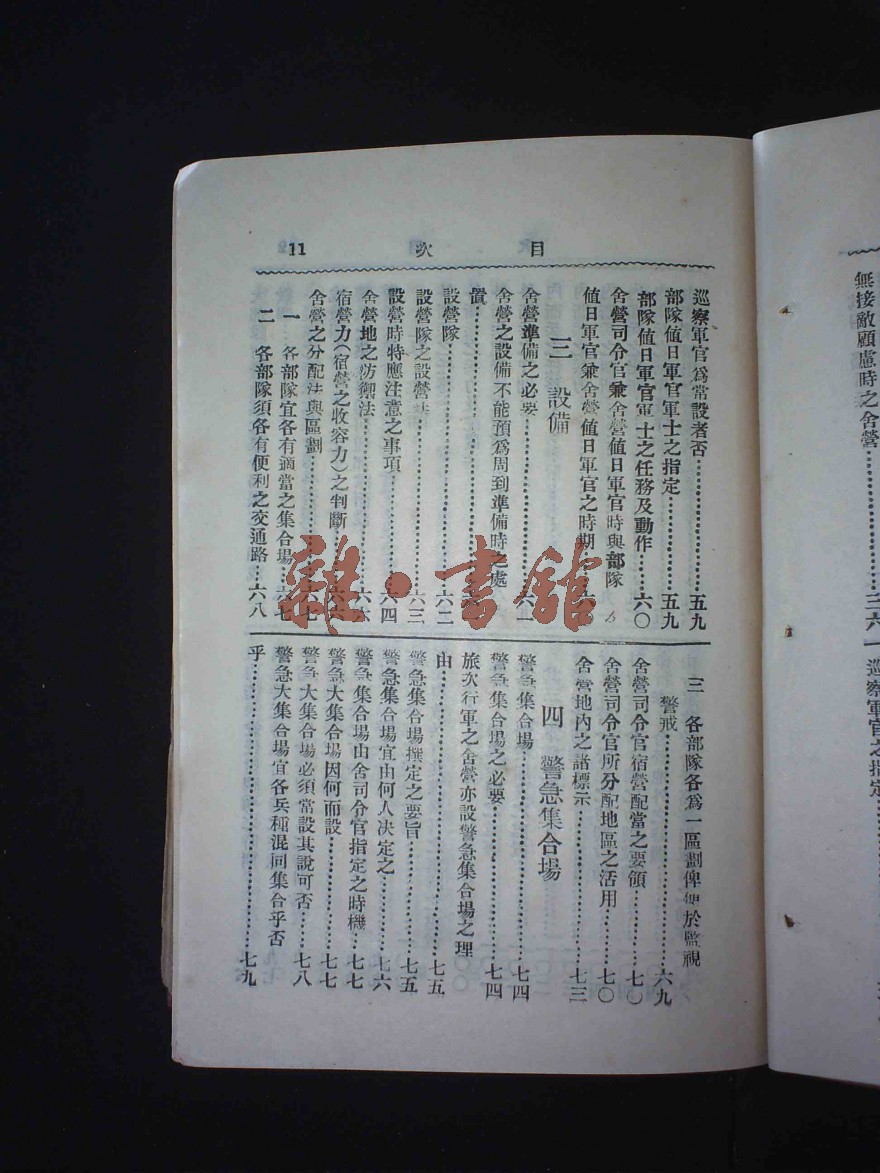 目次
11
巡察軍官爲常設者否……五九
部隊値日軍官軍士之指定……五九
部隊値日軍官軍士之任務及動作……六〇
舍營司令官兼舍營値日軍官時與部隊
値日軍官兼舍營値日軍官之時期……六
三 設備
舍營準備之必要……六一
舍營之設備不能預爲周到準備時之處
置……
設營隊……六二
設營隊之設營法……六三
設營時特應注意之事項……六四
舍營地之防禦法……六
宿營力(宿營之收容力)之判斷……六
舍營之分配法與區劃……六七
一 各部隊宜各有適當之集合場……六七
二 各部隊須各有便利之交通路……六八
三 各部隊各爲一區劃俾便於監視
警戒……六九
舍營司令官宿營配當之要領……七〇
舍營司令官所分配地區之活用……七〇
舍營地內之諸標示……七三
四 警急集合場
警急集合場……七四
警急集合場之必要……七四
旅次行軍之舍營亦設警急集合場之理
由……七五
警急集合場撰定之要旨……七五
警急集合場宜由何人决定之……七六
警急集合場由舍司令官指定之時機……七七
警急大集合場因何而設……七七
警急大集合場必須常設其說可否……七八
警急大集合場宜各兵種混同集合乎否
乎……七九
無接敵顧慮時之舍營……三六
巡察軍官之指定
雜·書舘